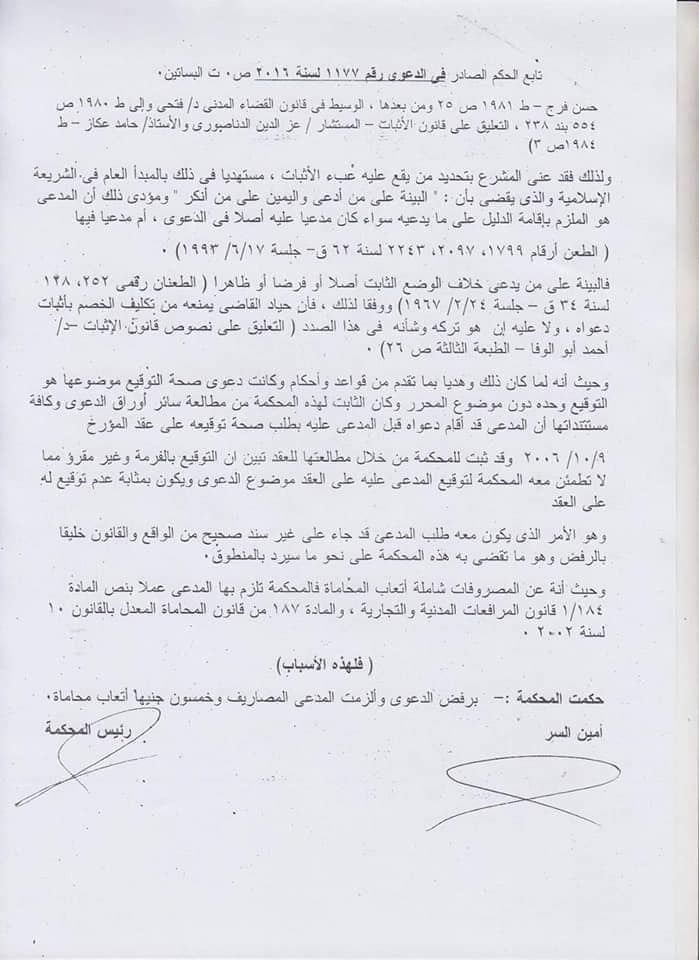 تابع الحكم الصادر في الدعوى رقم ١١٧٧ لسنة ٢٠١٦ ص٠ ت البساتين٠
حسن فرج – ط ١٩٨١ ص ٢٥ ومن بعدها ، الوسيط فى قانون القضاء المدنى د/ فتحى والى ط ١٩٨٠ ص
٥٥٤ بند ٢٣٨ ، التعليق على قانون الأثبات – المستشار / عز الدين الدناصورى والأستاذ/ حامد عكاز – ط
١٩٨٤ص ٣)
ولذلك فقد عنى المشرع بتحديد من يقع عليه عبء الأثبات ، مستهديا فى ذلك بالمبدأ العام فى الشريعة
الإسلامية والذى يقضى بأن : " البينة على من أدعى واليمين على من أنكر " ومؤدى ذلك أن المدعى
هو الملزم بإقامة الدليل على ما يدعيه سواء كان مدعيا عليه أصلا فى الدعوى ، أم مدعيا فيها
( الطعن أرقام ١٧٩٩، ٢٠٩٧، ٢٢٤٣ لسنة ٦٢ ق– جلسة ١٩٩٣/٦/١٧) ٠
فالبينة على من يدعى خلاف الوضع الثابت أصلا أو فرضا أو ظاهرا ( الطعنان رقمى ٢٥٢، ١٤٨
لسنة ٣٤ ق – جلسة ١٩٦٧/٢/٢٤) ووفقا لذلك ، فأن حياد القاضى يمنعه من تكليف الخصم بأثبات
دعواه ، ولا عليه إن هو تركه وشأنه فى هذا الصدد ( التعليق على نصوص قانون الإثبات –د/
أحمد أبو الوفا – الطبعة الثالثة ص ٢٦) ٠
وحيث أنه لما كان ذلك وهديا بما تقدم من قواعد وأحكام وكانت دعوى صحة التوقيع موضوعها هو
التوقيع وحده دون موضوع المحرر وكان الثابت لهذه المحكمة من مطالعة سائر أوراق الدعوى وكافة
مستنتداتها أن المدعى قد أقام دعواه قبل المدعى عليه بطلب صحة توقيعه على عقد المؤرخ
٢٠٠٦ /١٠/٩ وقد ثبت للمحكمة من خلال مطالعتها للعقد تبين ان التوقيع بالفرمة وغير مقرؤ مما
لا تطمئن معه المحكمة لتوقيع المدعى عليه على العقد موضوع الدعوى ويكون بمثابة عدم توقيع له
على العقد
وهو الأمر الذى يكون معه طلب المدعى قد جاء على غير سند صحيح من الواقع والقانون خليقا
بالرفض وهو ما تقضى به هذه المحكمة على نحو ما سيرد بالمنطوق٠
وحيث أنة عن المصروفات شاملة أتعاب المحاماة فالمحكمة تلزم بها المدعى عملا بنص المادة
١/١٨٤ قانون المرافعات المدنية والتجارية ، والمادة ١٨٧ من قانون المحاماة المعدل بالقانون ١٠
لسنة ٢٠٠٢ ٠
( فلهذه الأسباب)
حكمت المحكمة :– برفض الدعوى وألزمت المدعى المصاريف وخمسون جنيها أتعاب محاماة٠
أمين السر رئيس المحكمة